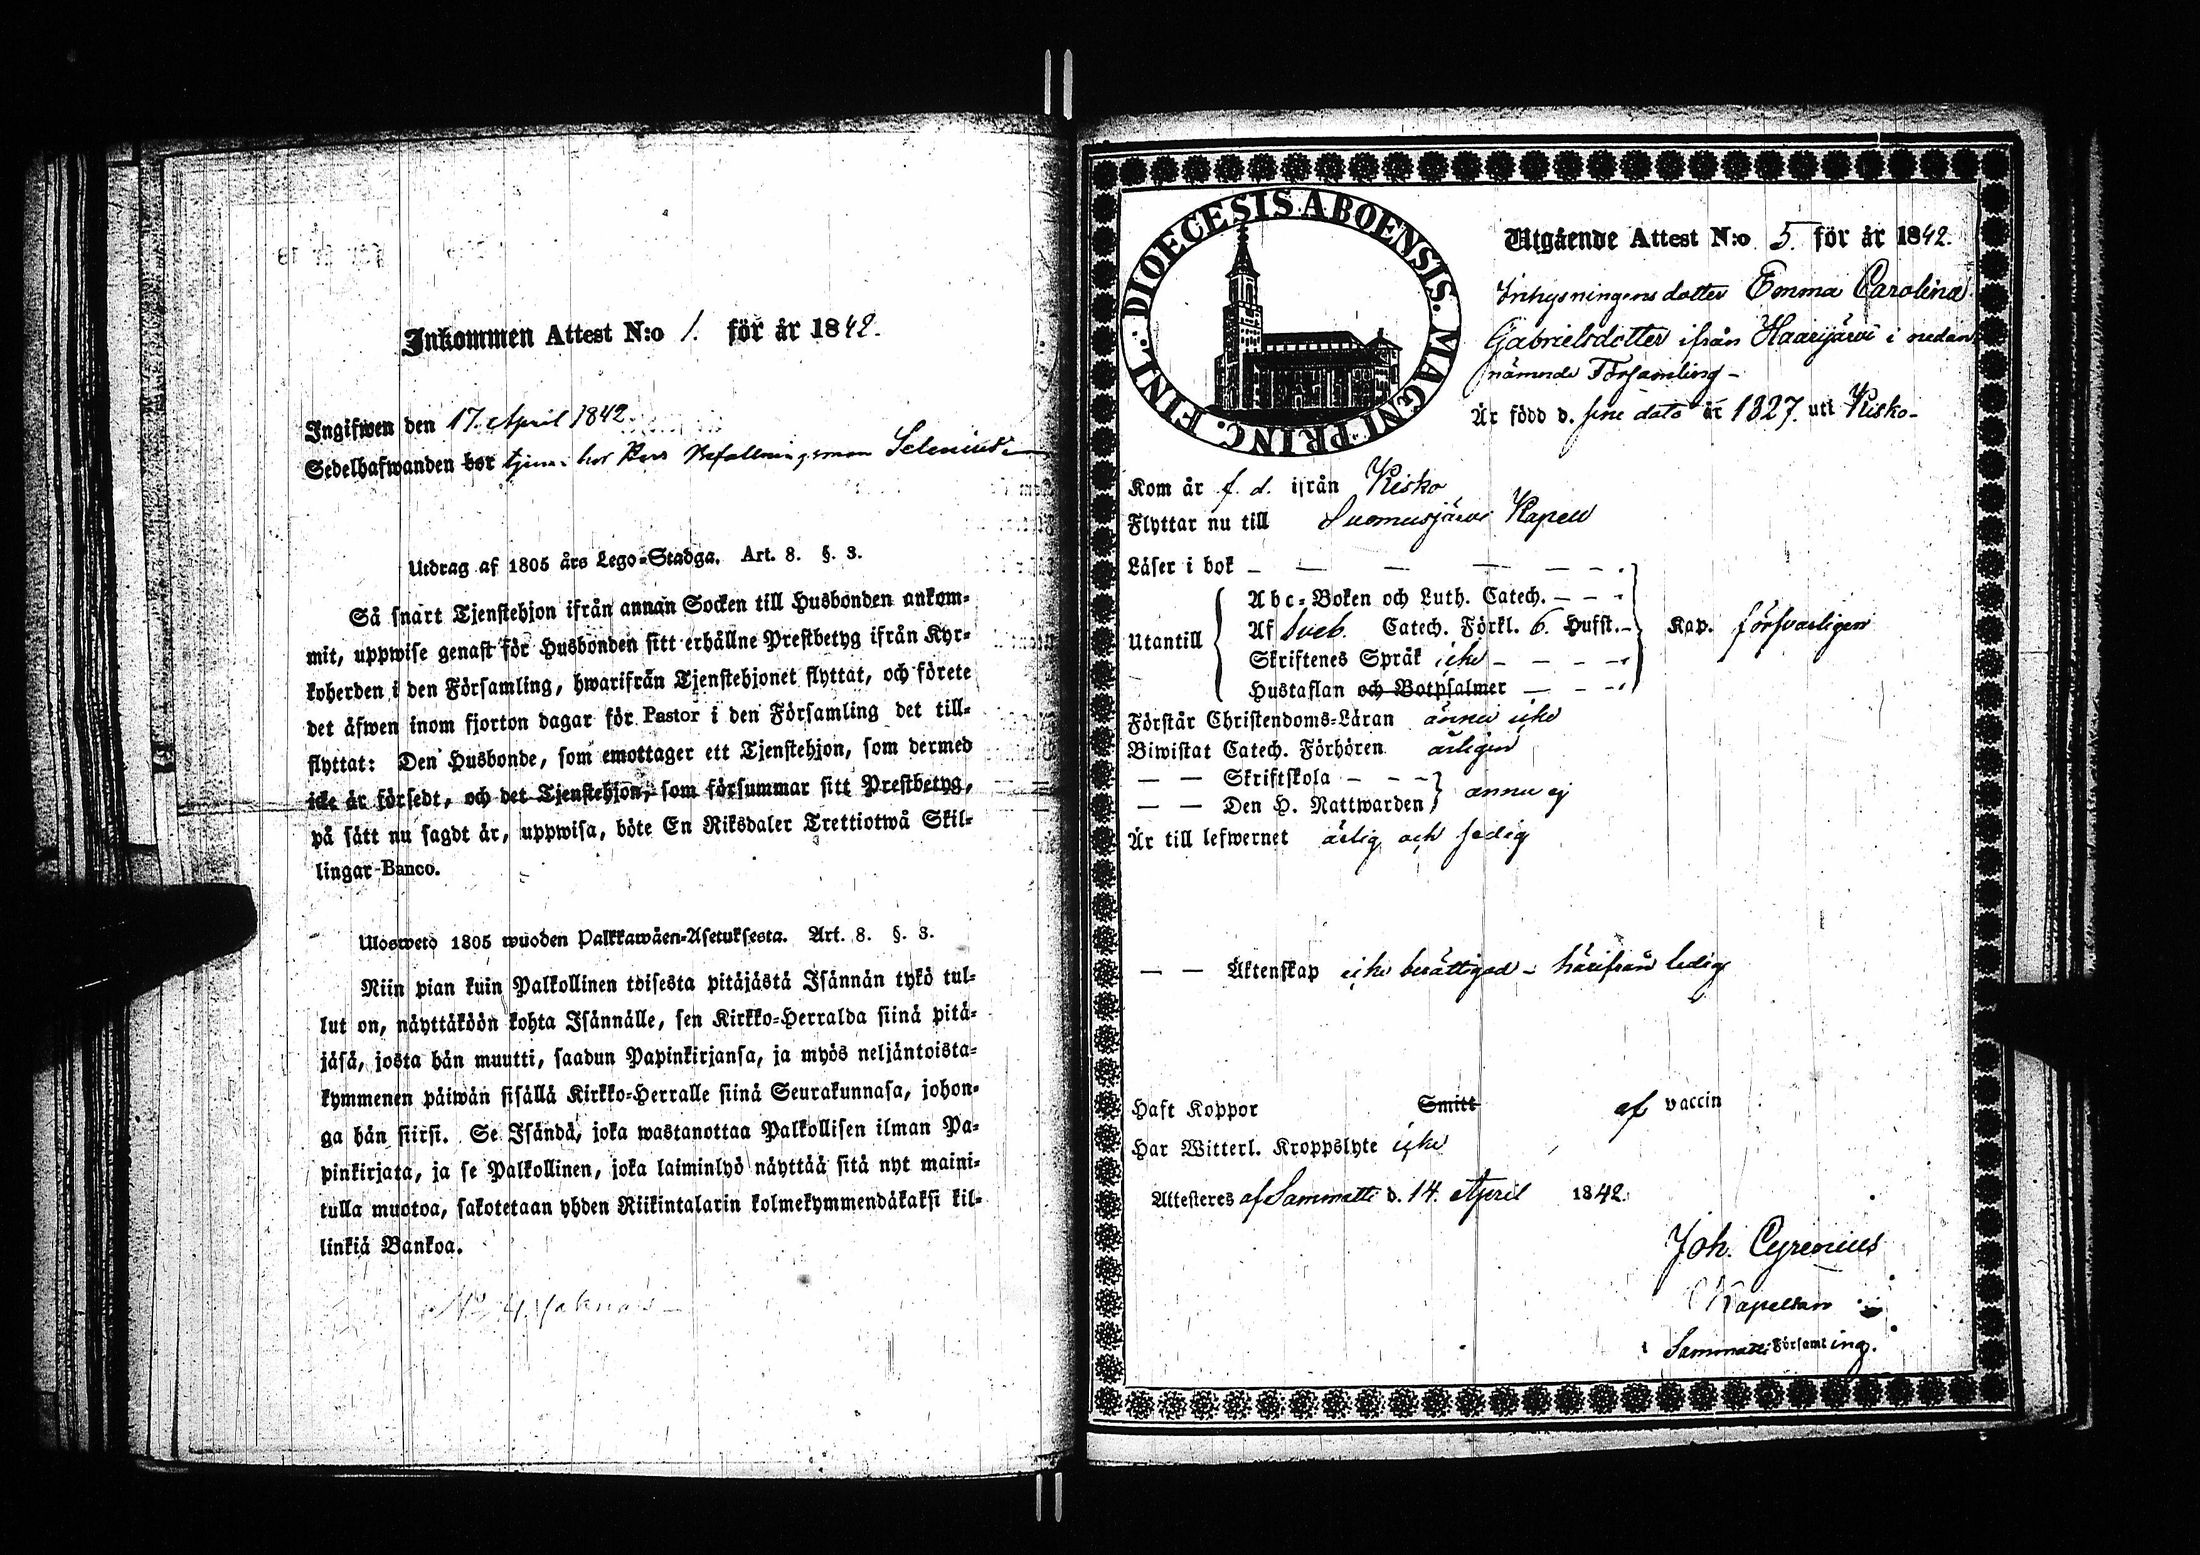 Inkommen Attest N:o 1. för år 1842.
Ingifwen den 17. April 1842.
Sedelhafwanden bor tjenar hos Befallningsman Selenius
Utdrag af 1805 års Lego-Stadga. Art. 8. §. 3.
Så snart Tjenstehjon ifrån annan Socken till Husbonden ankom-
mit, uppwise genast för Husbonden sitt erhållne Prestbetyg ifrån Kyr-
koherden i den Församling, hwarifrån Tjenstehjonet flyttat, och förete
det äfwen inom fjorton dagar för Pastor i den Församling det till-
flyttat: Den Husbonde, som emottager ett Tjenstehjon, som dermed
icke är försedt, och det Tjenstehjon, som försummar sitt Prestbetyg,
på sätt nu sagdt är, uppwisa, böte En Riksdaler Trettiotwå Skil-
lingar Banco.
Ulosweto 1805 wuoden Palkkawäen-Asetuksesta. Art. 8. §. 3.
Niin pian kuin Palkollinen toisesta pitäjästä Isännän tykö tul-
lut on, näyttäköön kohta Isännälle, sen Kirkko-Herralda siinä pitä-
jäsä, josta hän muutti, saadun Papinkirjansa, ja myös neljäntoista-
kymmenen päiwän sisällä Kirkko-Herralle siinä Seurakunnasa, johon-
ga hän siirsi. Se Isändä, joka wastanottaa Palkollisen ilman Pa-
pinkirjata, ja se Palkollinen, joka laiminlyö näyttää sitä nyt maini-
tulla muotoa, sakotetaan yhden Riikintalarin kolmekymmendäkaksi kil-
linkiä Bankoa.
DIOECESIS ABOENSIS. MAGNI PRINC. FINL.
Utgående Attest N:o 5. för år 1842.
Inhysningens dotter Emma Carolina
Gabrielsdotter ifrån Haarijärvi i nedan
nämnde Församling -
Är född d. sine dato år 1827. uti Kisko-
Kom år f. d. ifrån Kisko
Flyttar nu till Suomusjärvi Kapell
Läser i bok
Abc-Boken och Luth. Catech.
Utantill Af Sveb. Catech. Förkl. 6. Hufst. Kap. försvarligen
Skriftenes Språk icke
Hustaflan och Botpsalmer
Förstår Christendoms-Läran ännu icke
Biwistat Catech. Förhören ärligen
— — Skriftskola
— — Den H. Nattwarden ännu ej
Är till lefwernet ärlig och sedig
— — Äktenskap icke berättigad - härifrån ledig
Haft Koppor Smitt af vaccin
Har Witterl. Kroppslyte icke
Attesteres af Sammatti d. 14. April 1842.
Joh. Cyrenius
Kapellan
i Sammatti Församling.